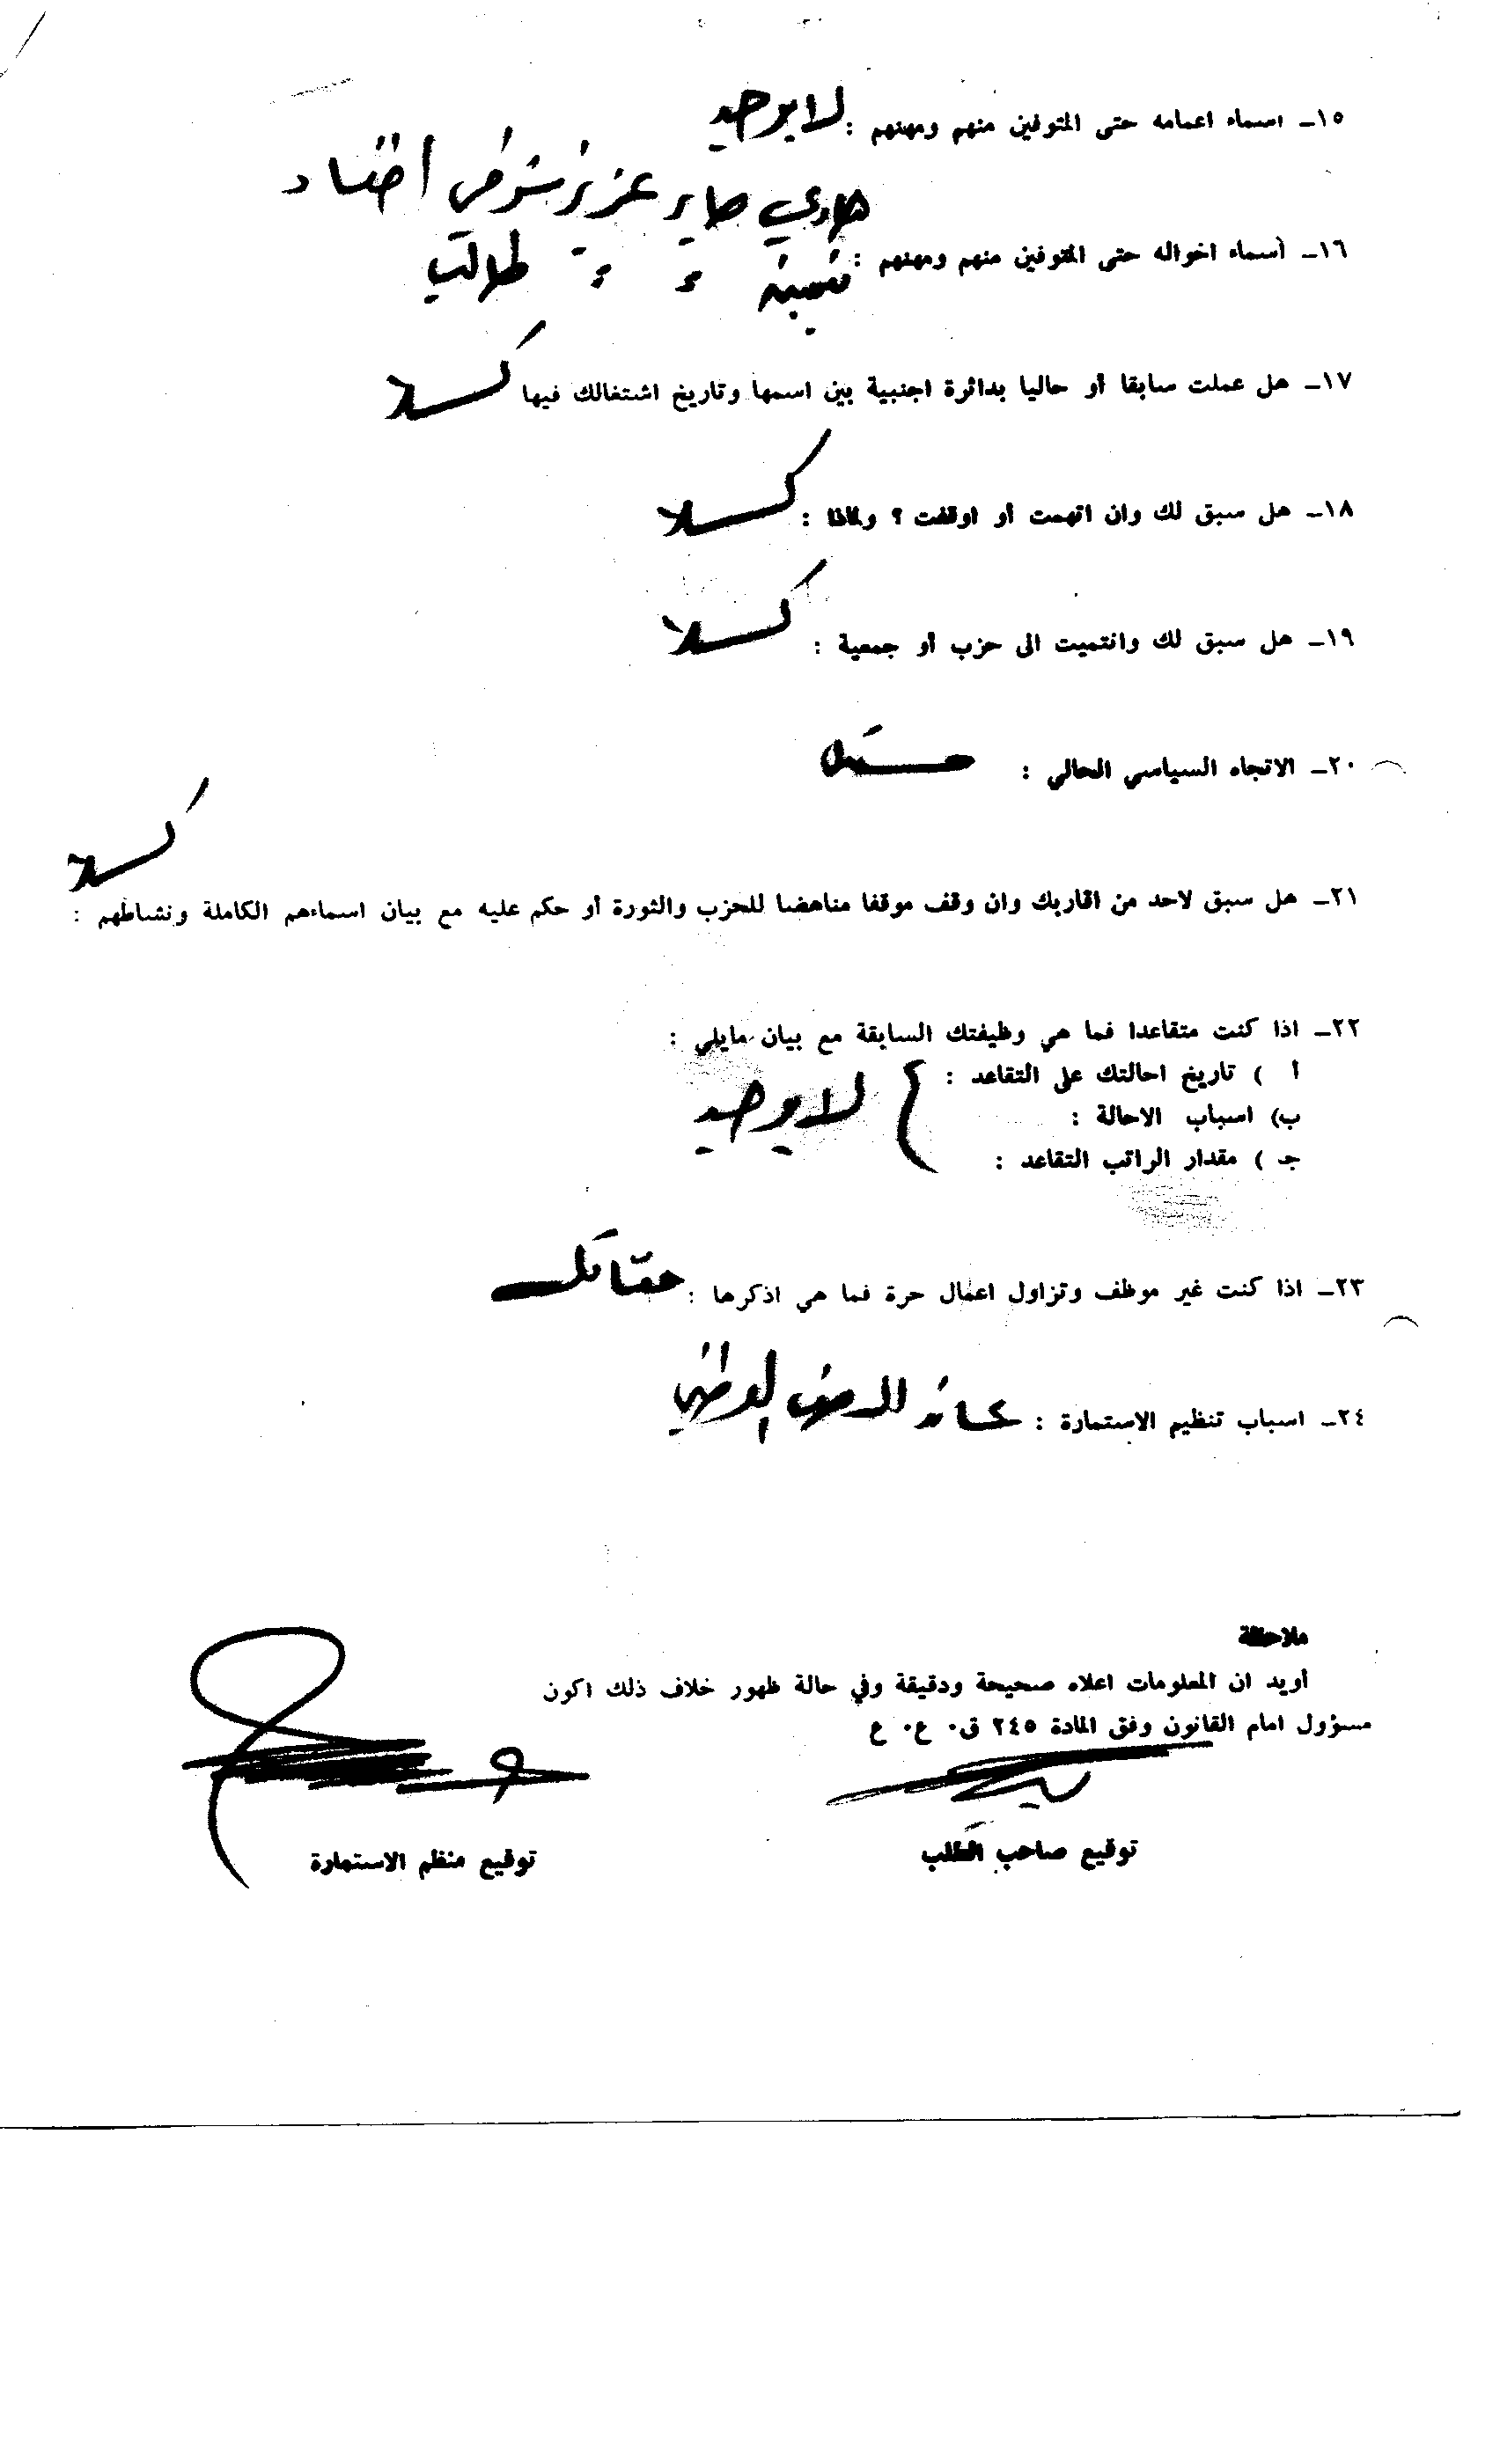 ١٥ـ اسماء اعمامه حتى المتوفين منهم ومهنهم : لا يوجد
هادي صابر عزيز شرطي
١٦ـ أسماء اخواله حتى المتوفين منهم ومهنهم :
طالب
١٧ـ هل عملت سابقا أو حاليا بدائرة اجنبية بين اسمها وتاريخ اشتغالك فيها كلا
١٨ـ هل سبق لك وان اتهمت أو اوقفت ؟ ولماذا : كلا
١٩ـ هل سبق لك وانتميت الى حزب أو جمعية : كلا
٢٠ـ الاتجاه السياسي الحالي : مستقل
كلا
٢١ـ هل سبق لاحد من اقاربك وان وقف موقفا مناهضا للحزب والثورة أو حكم عليه مع بيان اسماءهم الكاملة ونشاطهم :
٢٢ـ اذا كنت متقاعدا فما هي وظيفتك السابقة مع بيان مايلي :
أ ) تاريخ احالتك على التقاعد :
ب) اسباب الاحالة : لا يوجد
جـ ) مقدار الراتب التقاعد :
٢٣ـ اذا كنت غير موظف وتزاول اعمال حرة فما هي اذكرها :
٢٤ـ اسباب تنظيم الاستمارة : الوطني
ملاحظة
أويد ان المعلومات اعلاه صحيحة ودقيقة وفي حالة ظهور خلاف ذلك اكون
مسؤول امام القانون وفق المادة ٢٤٥ ق٠ ع٠ ع
توقيع صاحب الطلب
توقيع منظم الاستمارة